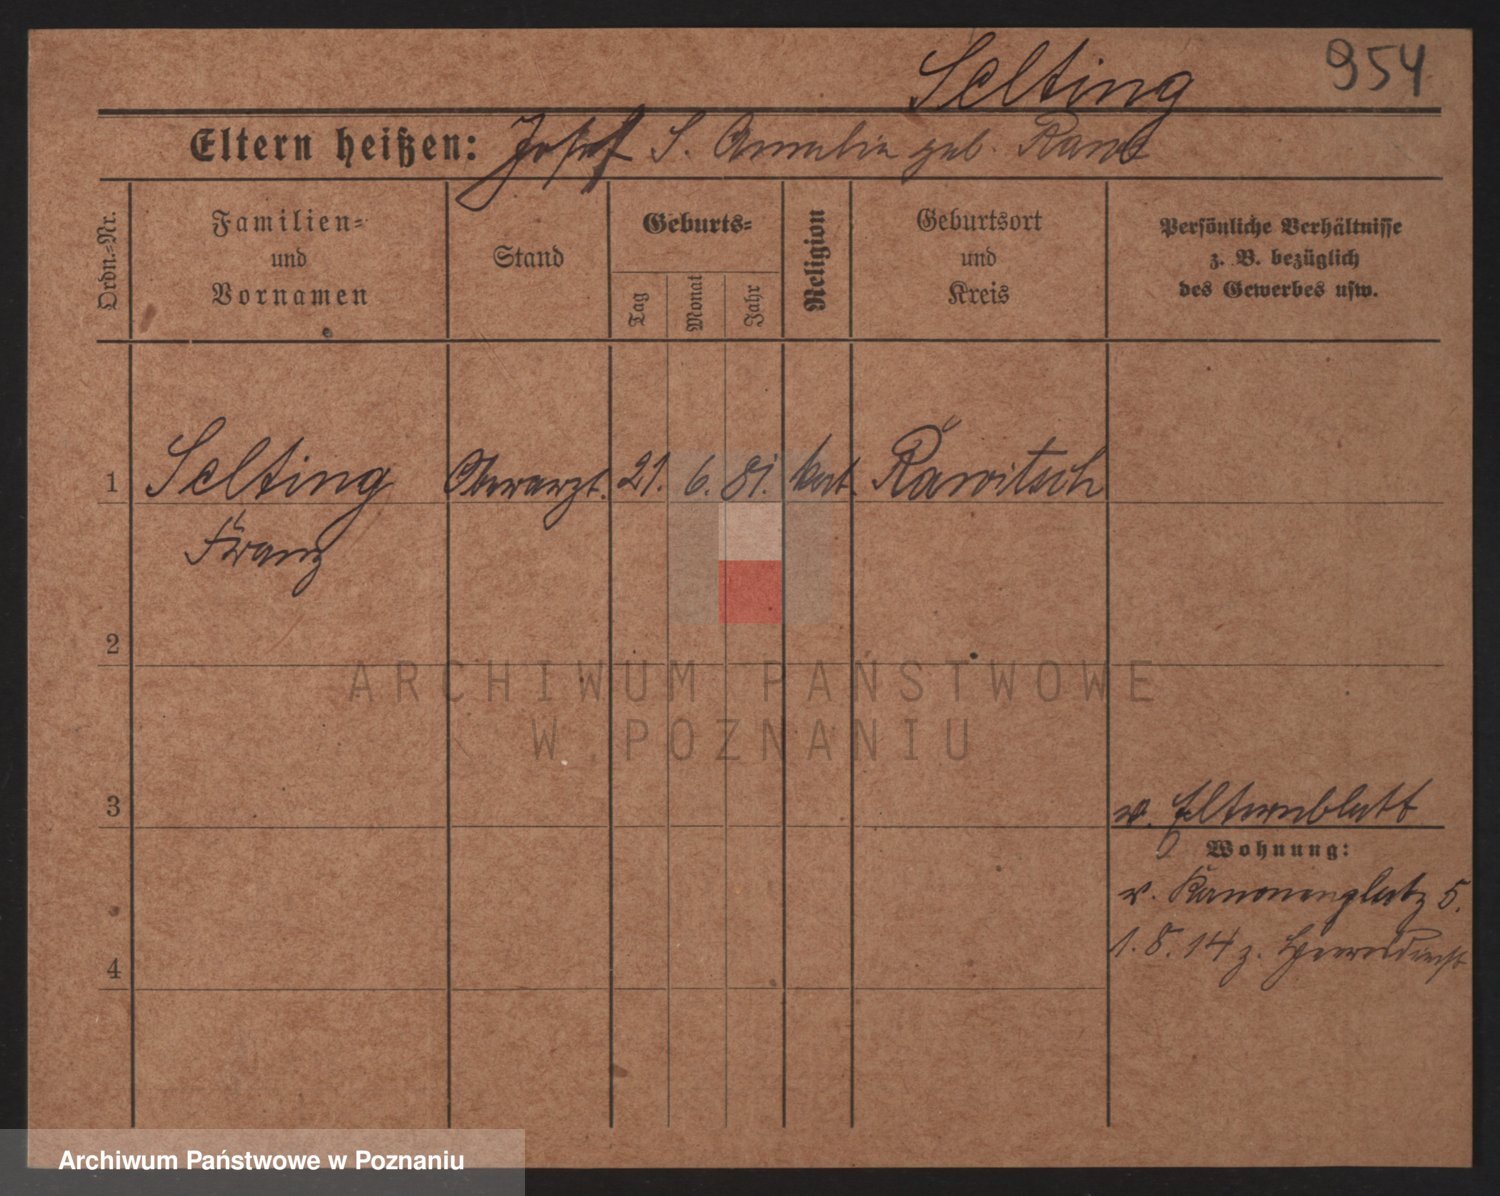 Selting
954
Eltern heißen: Josef S. Amalie geb. Rand
Ordn.-Nr.
Familien-
und
Vornamen
Stand
Geburts-
Tag
Monat
Jahr
Religion
Geburtsort
und
Kreis
Persönliche Verhältnisse
z. B. bezüglich
des Gewerbes usw.
1 Selting Oberarzt. 21. 6. 81. kat. Rawitsch
Franz
2
3
v. Elternblatt
Wohnung:
v. Kanonenplatz 5.
4
1. 8. 14 z. Heeresdienst
ARCHIWUM PAŃSTWOWE
W POZNANIU
Archiwum Państwowe w Poznaniu